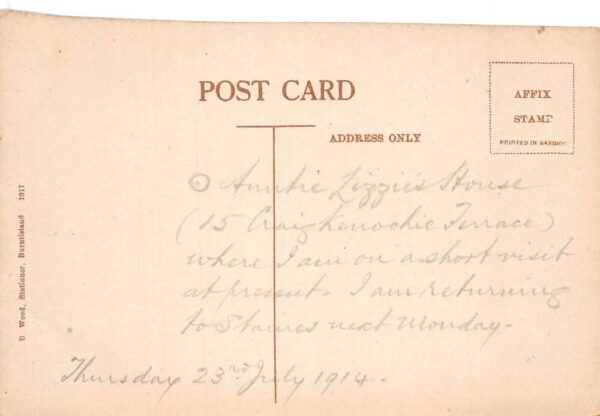 POST CARD
AFFIX
STAMP
PRINTED IN SAXONY
ADDRESS ONLY
Auntie Lizzie's House
(15 Craigkennochie Terrace)
where I am on a short visit
at present. I am returning
to Staines next Monday.
Thursday 23rd July 1914.
D Wood, Stationer, Burntisland 1017